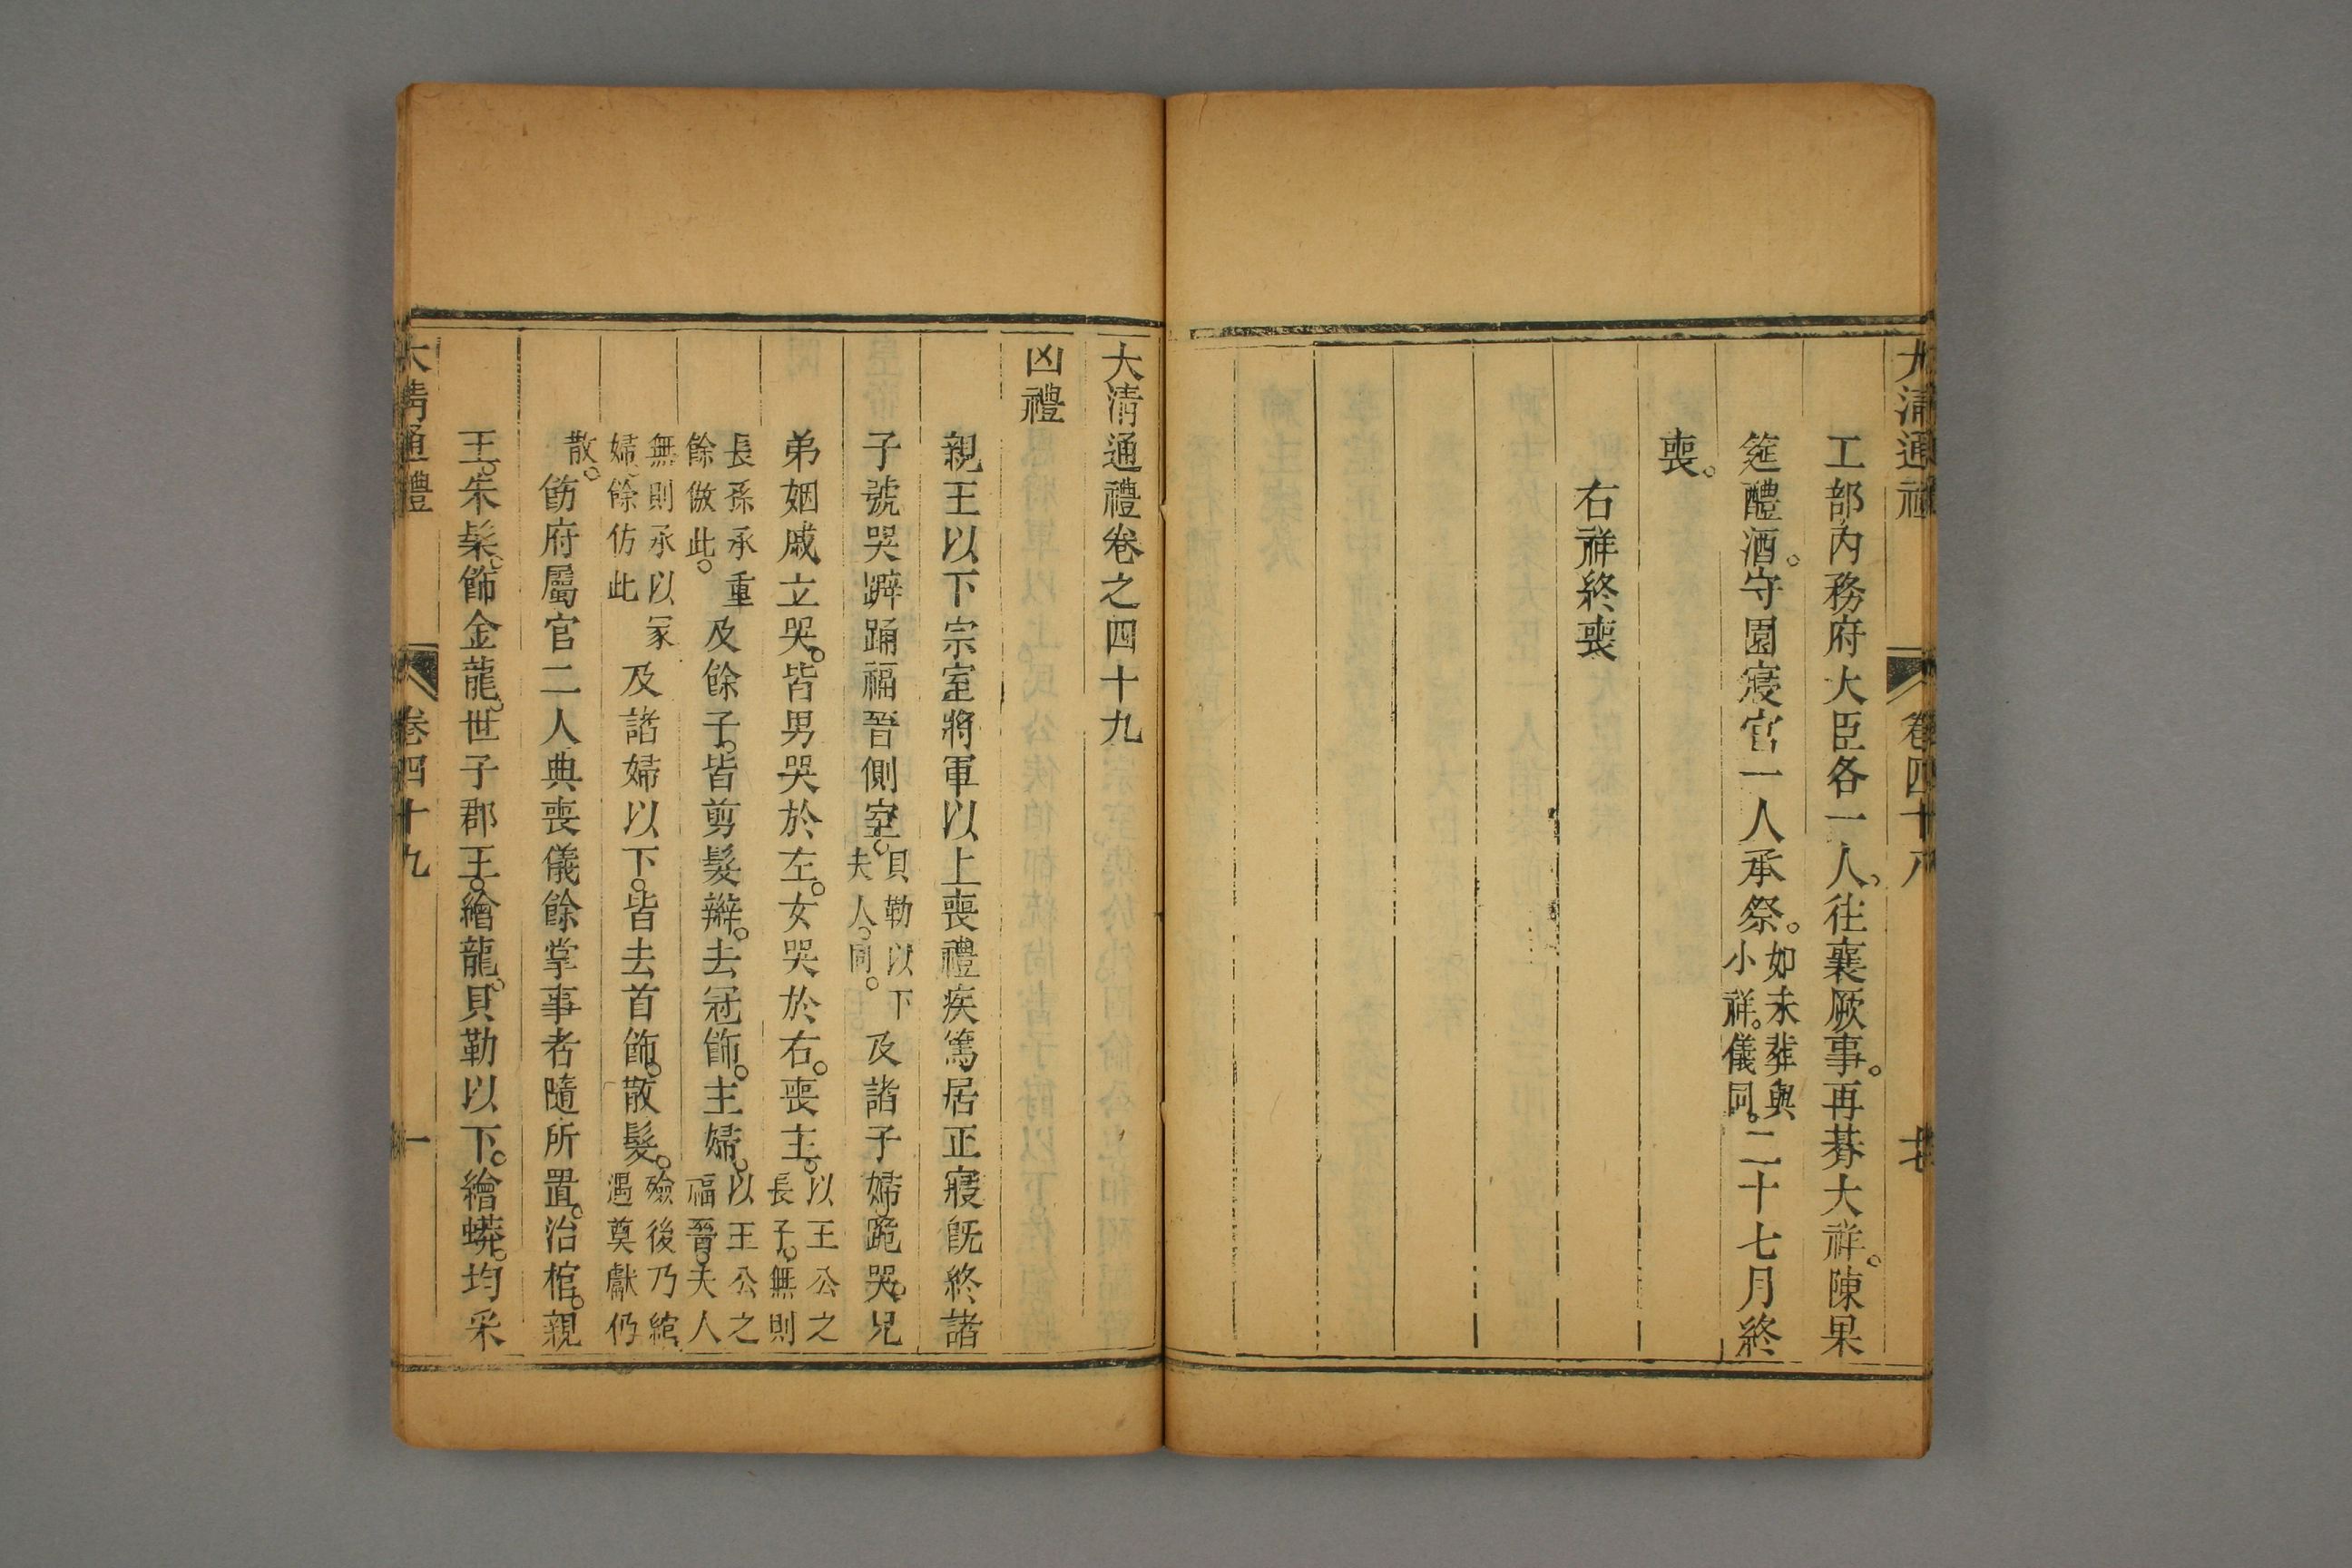 大清通禮 卷四十八
工部內務府大臣各一人往襄厥事。再朞大祥。陳果
筵醴酒。守園寢官一人承祭。如未葬與小祥。儀同。二十七月終
喪。
右祥終喪
大清通禮卷之四十九
凶禮
親王以下宗室將軍以上喪禮疾篤居正寢既終諸
子號哭躃踊福晉側室。貝勒以下夫人。同。及諸子婦跪哭。兄
弟姻戚立哭。皆男哭於左。女哭於右。喪主。以王公之長子。無則
長孫承重餘倣此。及餘子。皆剪髮辮。去冠飾。主婦。以王公之福晉。夫人
無則承以冢婦餘仿此及諸婦以下。皆去首飾。散髮。殮後乃綰遇奠獻仍
散。飭府屬官二人典喪儀餘掌事者隨所置。治棺。親
王。朱髹。飾金龍。世子郡王。繪龍。貝勒以下。繪蟒。均采
大清通禮 卷四十九 一